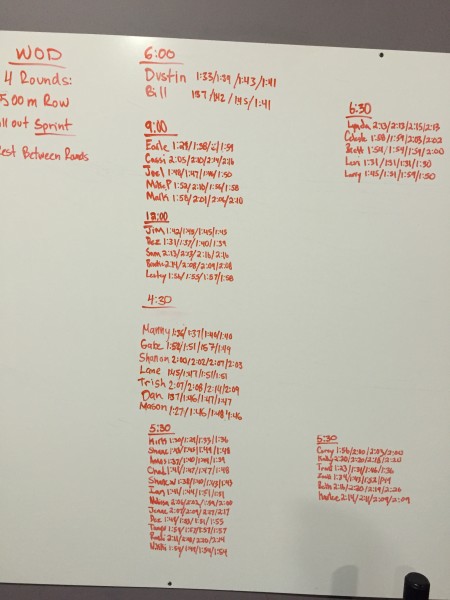 WOD
4 Rounds:
500m Row
All out Sprint
Rest Between Rounds
6:00
Dustin 1:33/1:39 /1:43/1:41
Bill 137/142/145/1:41
9:00
Earle 1:29/1:38/ /1:39
Cassi 2:05/2:10/2:14/2:16
Joel 1:48/1:47/1:49/1:50
Mike P 1:52/2:10/1:56/1:58
Mark 1:58/2:01/2:06/2:10
12:00
Jim 1:42/1:43/1:45/1:43
Dez 1:31/1:37/1:40/1:39
Sam 2:13/2:13/2:16/2:16
2:14/2:08/2:09/2:08
Lesley 1:56/1:55/1:57/1:58
4:30
Manny 1:36/1:37/1:40/1:40
Gabe 1:52/1:51/157/1:49
Shanon 2:00/2:02/2:07/2:03
Lane 145/1:47/1:51/1:51
Trish 2:07/2:08/2:14/2:09
Dan 137/1:46/1:47/1:47
Mason 1:27/1:46/1:48/1:46
5:30
Kirk 1:30/1:29/1:33/1:36
Shane 1:43/1:45/1:49/1:48
1:37/1:40/1:41/1:39
Chad 1:41/1:47/1:47/1:48
Shane W 1:38/1:40/1:43/1:43
Ivan 1:41/1:44/1:51/1:51
Jenae 2:07/2:09/2:17/2:17
Dez 1:49/1:53/1:51/1:55
Nikki 1:54/1:49/1:54/1:54
6:30
Lynda 2:13/2:13/2:15/2:13
1:58/1:59/2:03/2:02
Brett 1:54/1:54/1:59/2:00
Levi 1:31/131/1:31/1:30
Larry 1:45/1:51/1:59/1:50
5:30
Corey 1:56/2:00/2:03/2:00
Kelly 2:20/2:20/2:18/2:20
1:23/1:31/1:46/1:36
Beth 2:16/2:20/2:19/2:26
Harlee 2:14/2:11/2:09/2:09